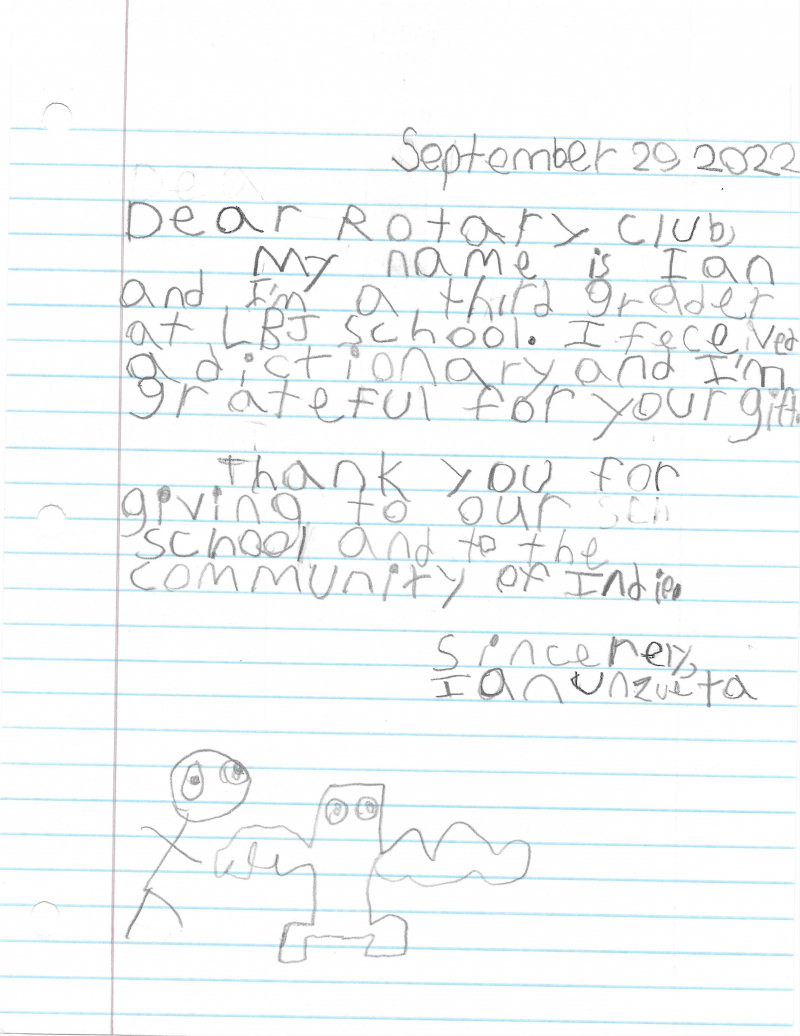 September 29 2022
Dea
Dear Rotary Club,
My name is Ian
and I'm a third grader
at LBJ school. I received
a dictionary and I'm
grateful for your gift.
Thank you for
giving to our sch
school and to the
community of Indio.
Sincerely,
Ian Unzueta